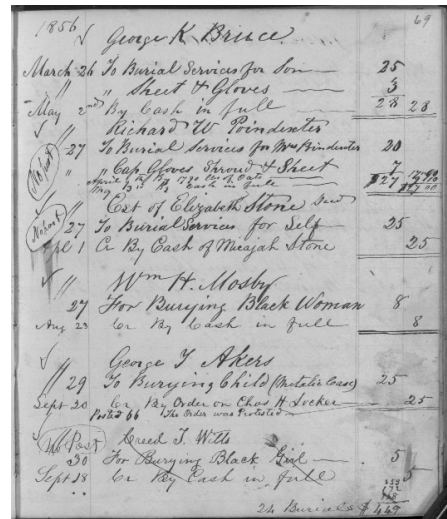 1856 69
George K. Bruce
March 26 To Burial Services for Son 25
" " Sheet & Gloves 3
May 2nd By Cash in full 28 28
" Richard W Poindexter
27 To Burial Services for Mrs Poindexter 20
No post
" " Cap Gloves Shroud & Sheet 7
April By Of Date
By Cash in full $27
" Est of Elizabeth Stone Decd
No post
27 To Burial Services for Self 25
1 Cr By Cash of Micajah Stone 25
" Wm H. Mosby
27 For Burying Black Woman 8
Aug 23 Cr By Cash in full 8
" George T Akers
" 29 To Burying Child (Metalic Case) 25
Sept 20 Cr By Order on Chas H. Locker 25
Posted 66 The Order was Protested
No Post Creed T. Wills
30 For Burying Black Girl 5
Sept 18 Cr By Cash in full 5
24 Burials $ 449